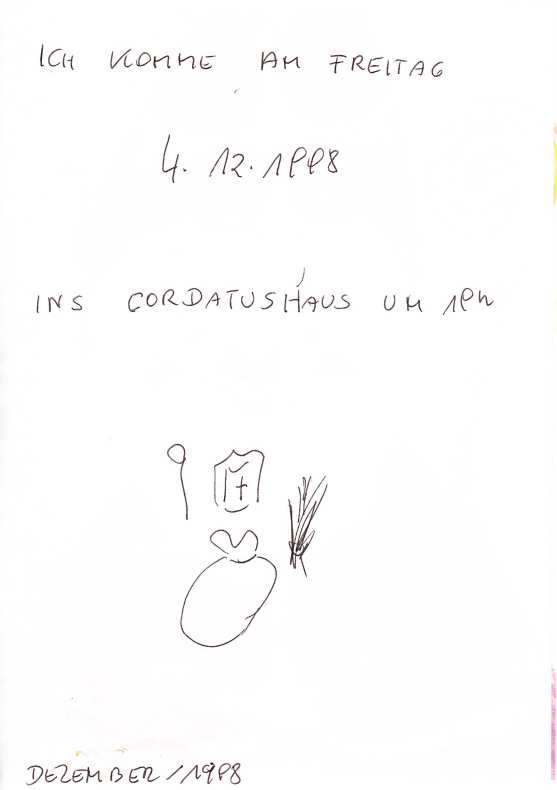 ICH KOMME AM FREITAG
4. 12. 1998
INS CORDATUSHAUS UM 19h
DEZEMBER/1998